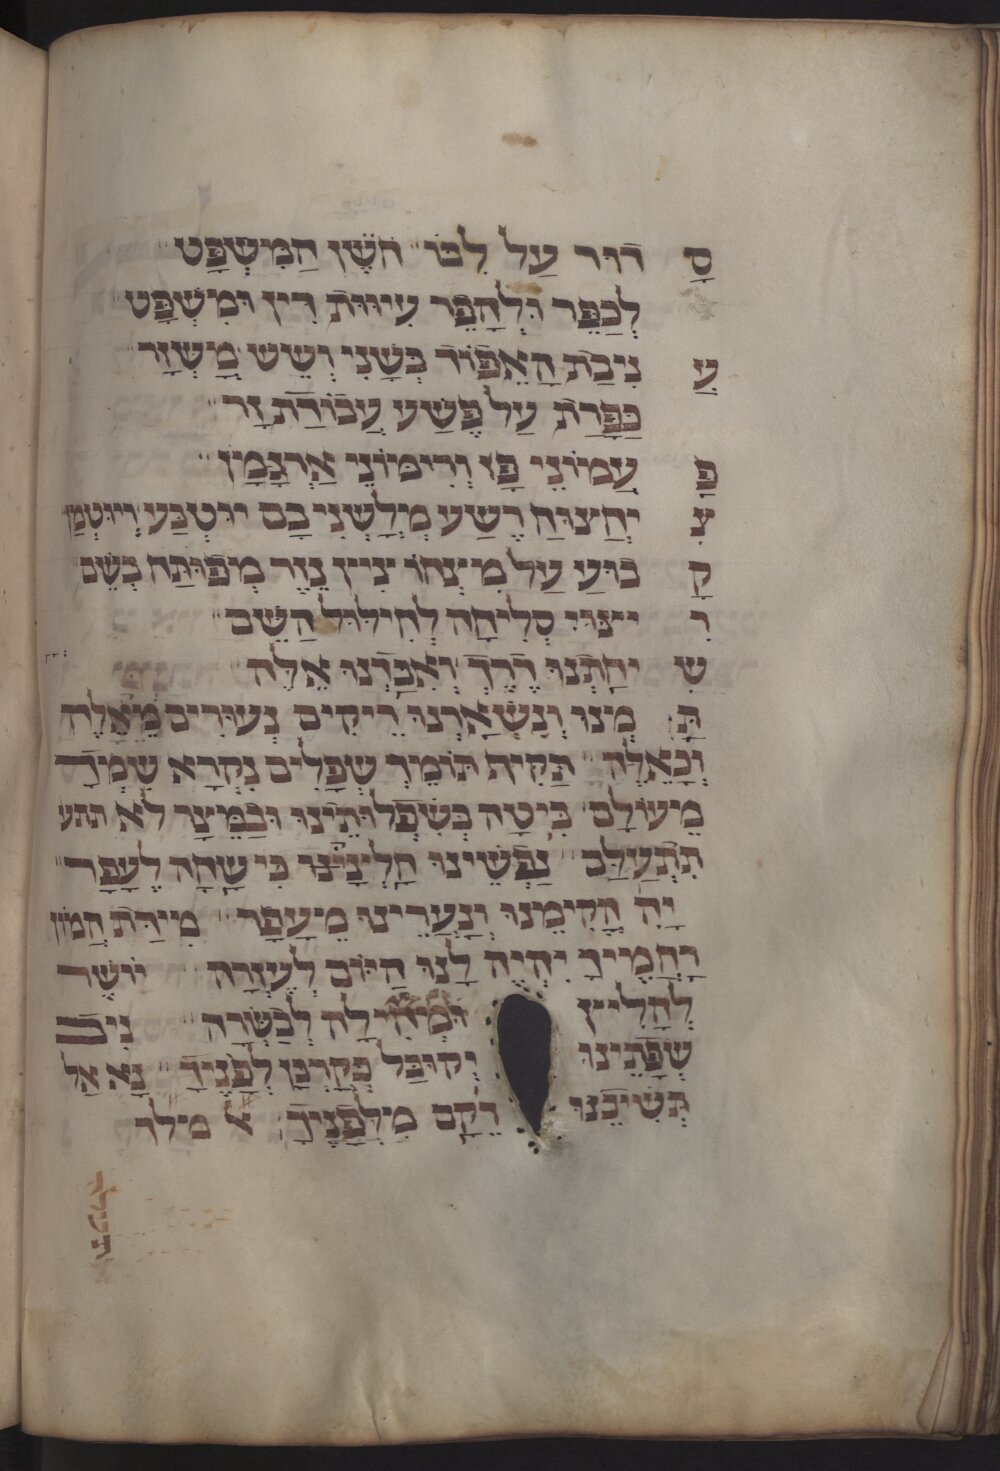 סָ דוּר עַל לִבּוֹ חֹשֶׁן הַמִּשְׁפָּט
לְכַפֵּר וּלְהָפֵר עִיוּוּת דִּין וּמִשְׁפָּט
עֲ נִיבַת הָאֵפוֹד בְּשָׁנִי וְשֵׁשׁ מָשְׁזָר
כַּפָּרַת עַל פֶּשַׁע עֲבוֹדַת זָר
פַּ עֲמוֹנֵי פָּז וְרִימּוֹנֵי אַרְגָּמָן
צִ יְחֲצוּהַ רֶשַׁע מְלָשְׁנִי בָּם יוּטְבַּע וְיוּטְמַן
קָ בוּעַ עַל מִצְחוֹ צִיץ נֵזֶר מְפוּתָּח בְּשֵׁם
רִ יצּוּי סְלִיחָה לְחִילּוּל הַשֵּׁם
שִׁ יחַתְנוּ דֶרֶךְ וְאִבַּדְנוּ אֵלֶּה
תַּ מְנוּ וְנִשְׁאַרְנוּ רֵיקִים נְעוּרִים מֵאֵלֶּה
וְכָאֵלֶּה תַּקִּיף תּוֹמֵךְ שְׁפָלִים נִקְרָא שְׁמָךְ
מֵעוֹלָם בִּיטָה בְּשִׁפְלוּתֵינוּ וּבַמֵּצַר לֹא תהע
תִּתְעַלַּם נַפְשֵׁינוּ חַלְּצֵינוּ כִּי שָׁחָה לֶעָפָר
יָהּ הֲקִימֵנוּ וְנַעֲרֵינוּ מֵעָפָר מִידַּת הֲמוֹן
רַחֲמֶיךָ יִהְיֶה לָנוּ הַיּוֹם לְעֶזְרָה יוֹשֶׁר
לְהָלִיץ וּמְחִילָה לְבַשְּׂרָה נִיב
שְׂפָתֵינוּ יְקוּבַּל כְּקָרְבָּן לְפָנֶיךָ נָא אַל
תְּשִׁיבֵנוּ רֵקָם מִלְּפָנֶיךָ אל מלך